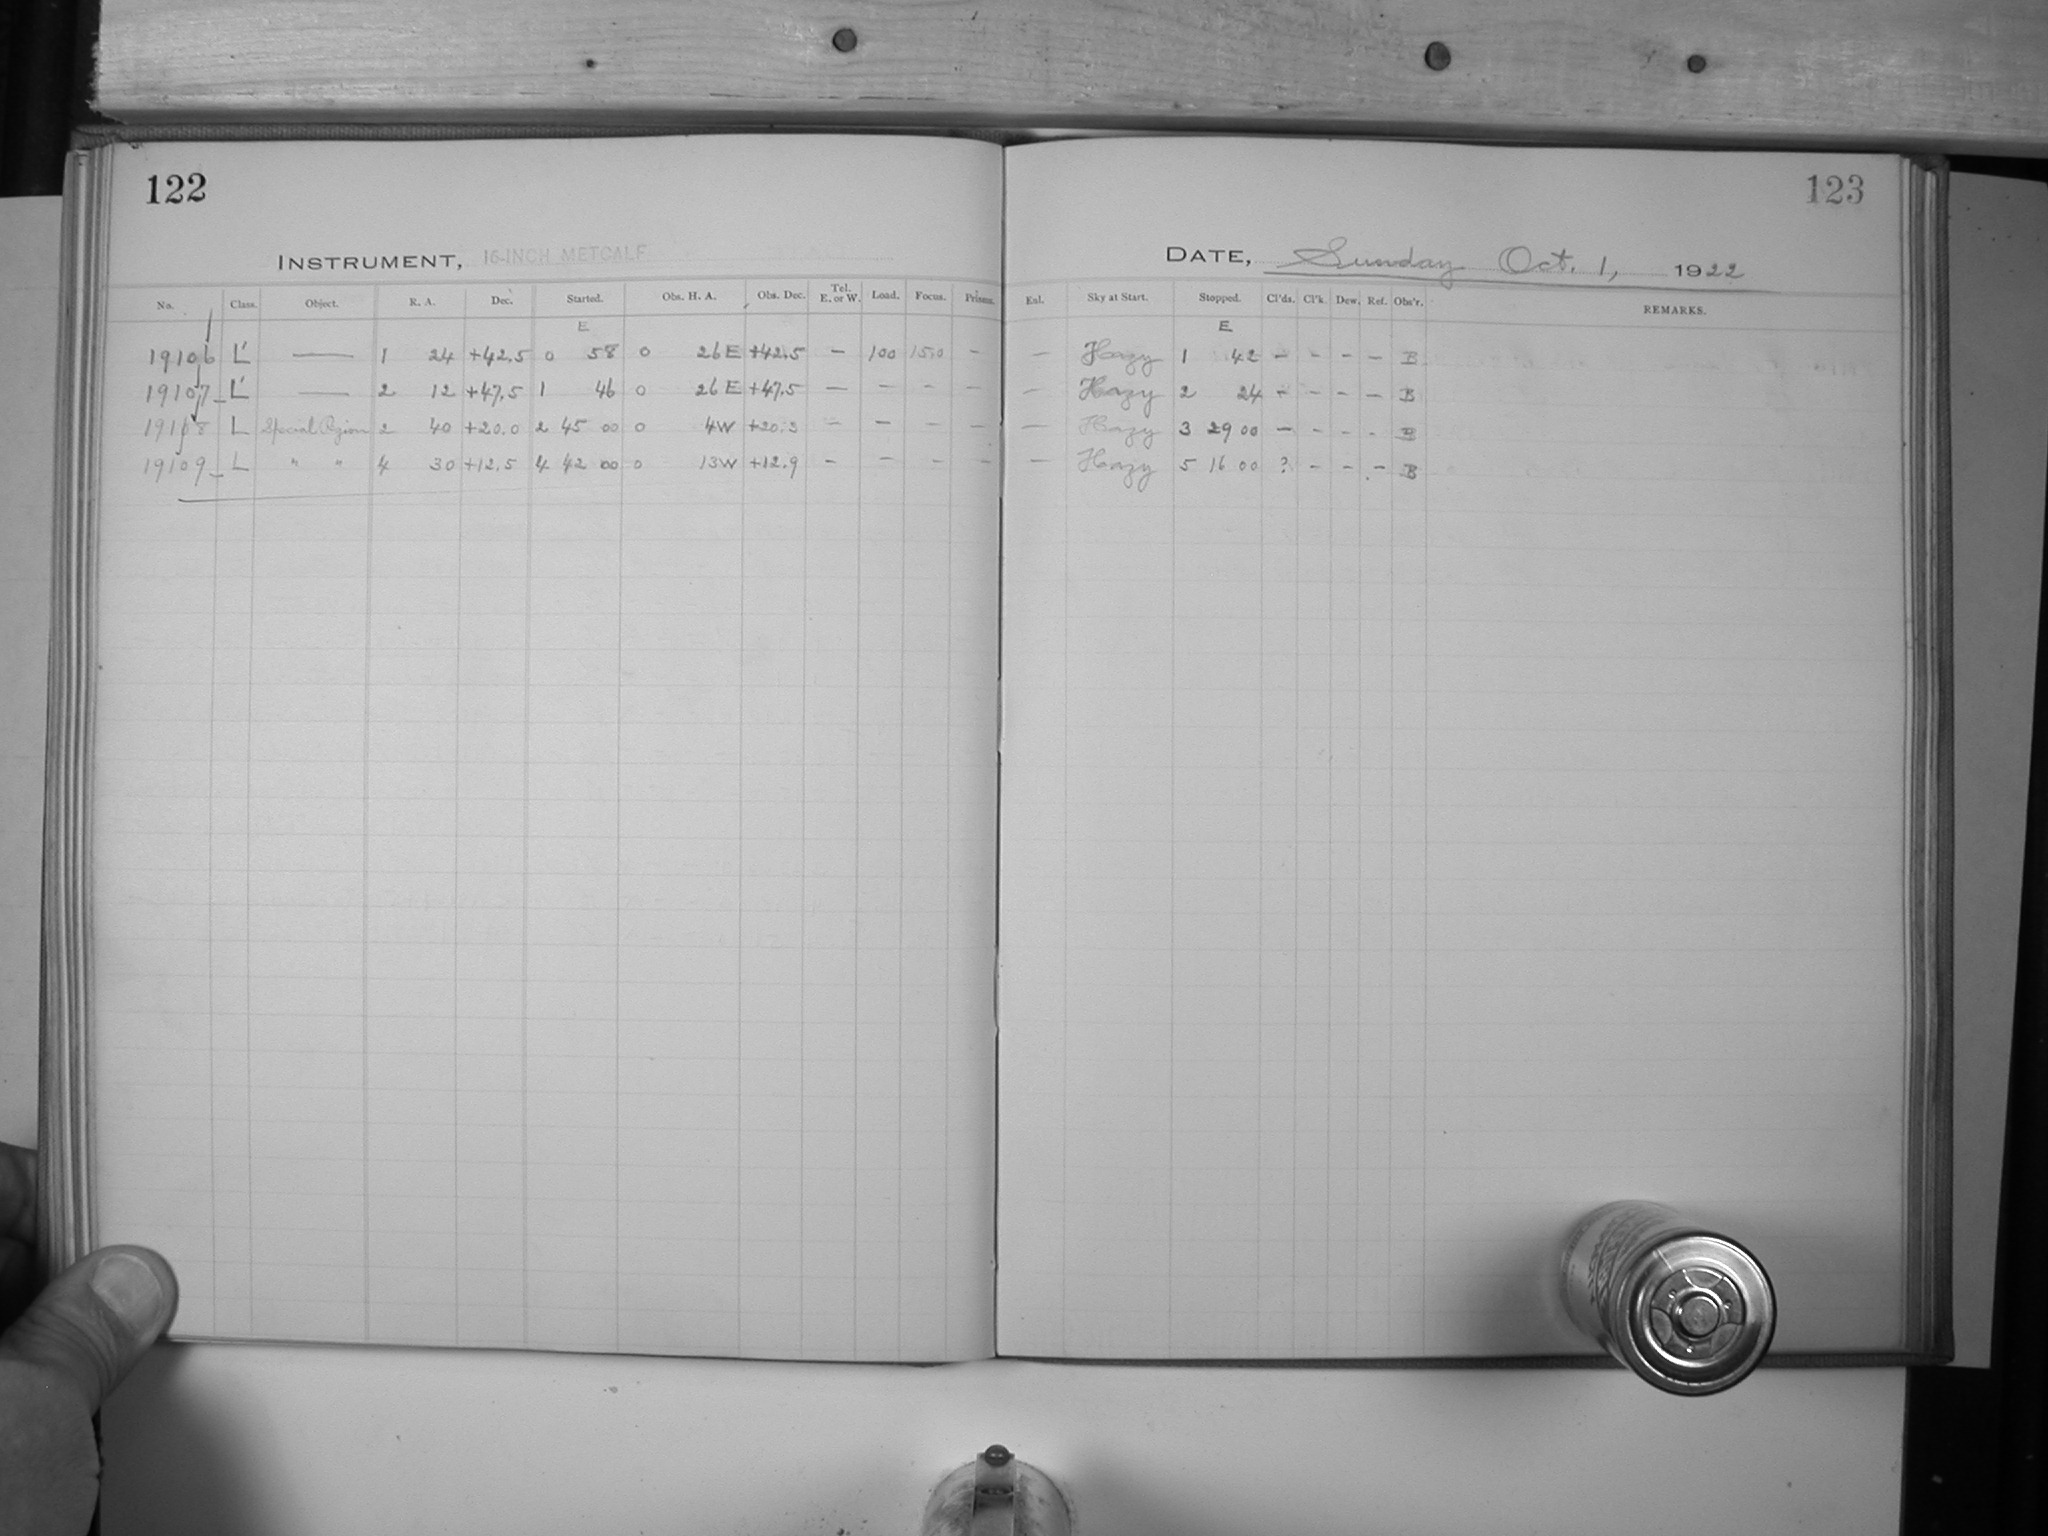 122
INSTRUMENT, 16-INCH METCALF
No. Class. Object. R. A. Dec. Started. Obs. H. A. Obs. Dec. Tel. E. or W. Load. Focus. Prisms.
E
19106 L' — 1 24 +42.5 0 58 0 26E +42.5 — 100 15.0 —
19107 L' — 2 12 +47.5 1 46 0 26E +47.5 — — — —
19108 L Special Region 2 40 +20.0 2 45 00 0 4W +20.3 — — — —
19109 L " " 4 30 +12.5 4 42 00 0 13W +12.9 — — — —
123
DATE, Sunday Oct. 1, 1922
Enl. Sky at Start. Stopped. Cl'ds. Cl'k. Dew. Ref. Obs'r. REMARKS.
E
— Hazy 1 42 — — — — B
— Hazy 2 24 — — — — B
— Hazy 3 29 00 — — — — B
— Hazy 5 16 00 ? — — — B